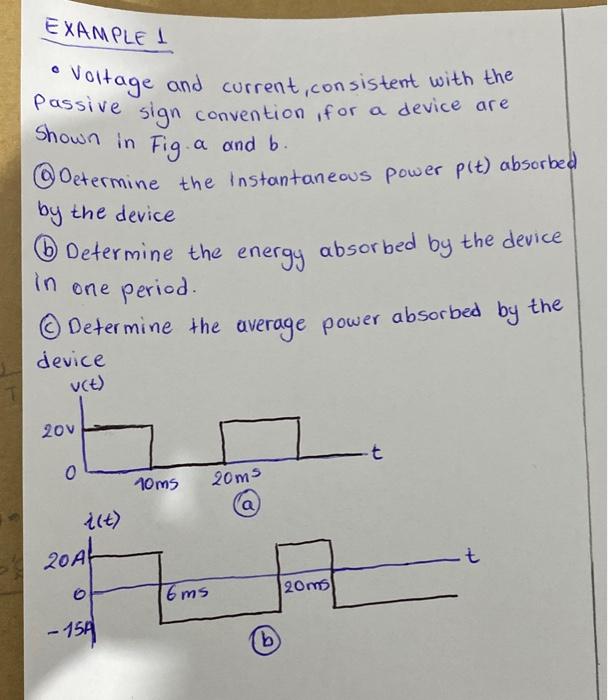 EXAMPLE 1
• Voltage and current, consistent with the
Passive sign convention, for a device are
Shown in Fig. a and b.
ⓐ Determine the instantaneous power p(t) absorbed
by the device
ⓑ Determine the energy absorbed by the device
in one period.
ⓒ Determine the average power absorbed by the
device
v(t)
20V
t
0
10ms 20ms
ⓐ
i(t)
20A
t
0
6ms 20ms
-15A
ⓑ